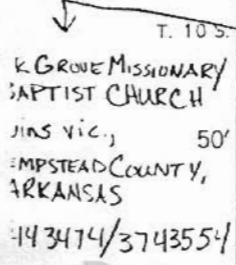 T. 10 S.
K GROVE MISSIONARY
APTIST CHURCH
INS VIC., 50'
EMPSTEAD COUNTY,
ARKANSAS
443474/3743554/